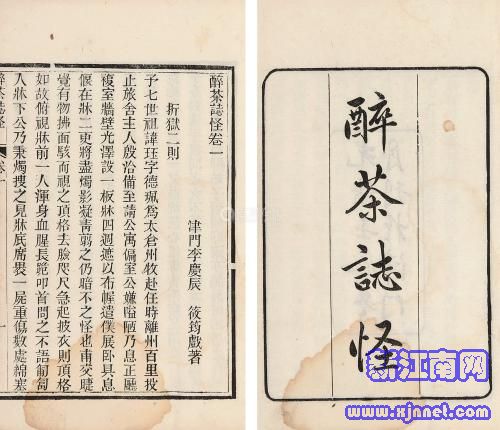 醉茶誌怪
醉茶誌怪卷一
津門李慶辰 筱筠戲著
折獄二則
予七世祖諱玨字德珮為太倉州牧赴任時離州百里投
止旅舍主人殷洽備至請公寓偏室公嫌隘陋乃息正廳
複室牆壁光澤設一板牀四週遮以布幄遣僕展臥具息
偃在牀二更將盡燭影凝青剪之仍暗不之怪也甫交睫
覺有物拂面駭而視之頂格去臉咫尺急起披衣則頂格
如故俯視牀前一人渾身血腥長跪叩首問之不語匍匐
入牀下公乃秉燭搜之見牀底席裹一屍重傷數處綿塞
醉茶誌怪 卷一
新江南网
www.xjnnet.com